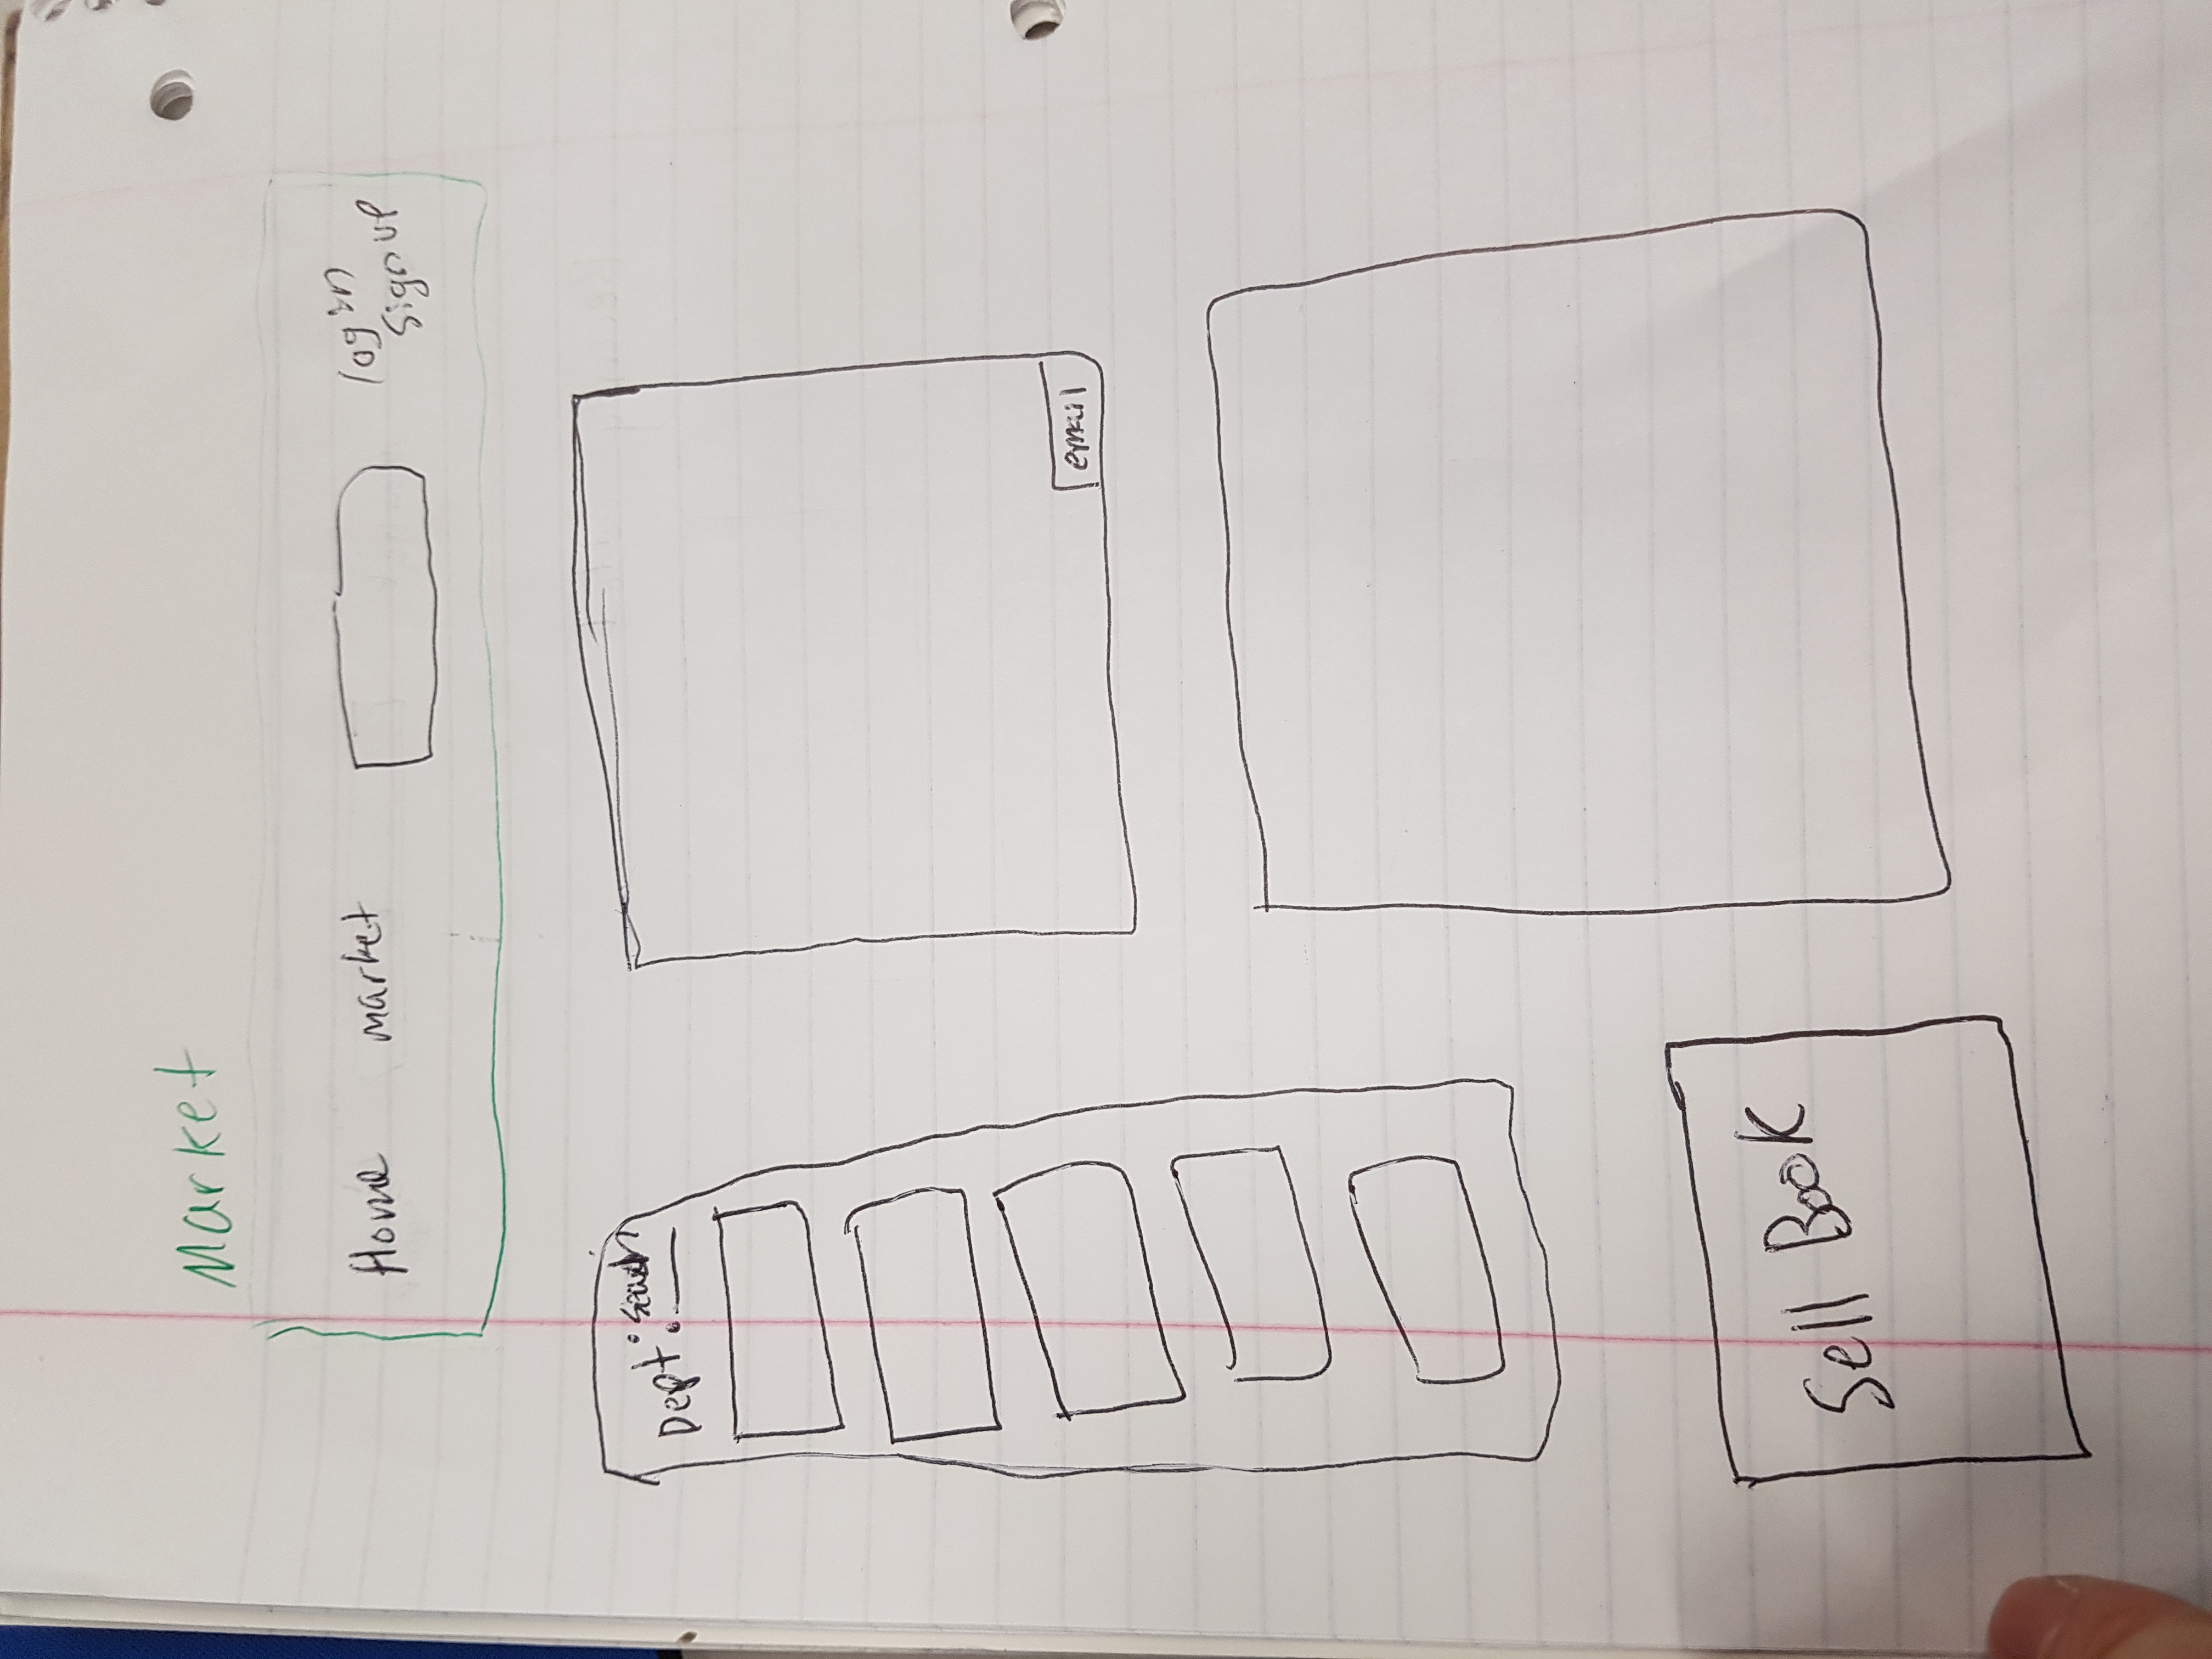 Market
Home market login
sign up
Dept: search
email
Sell Book